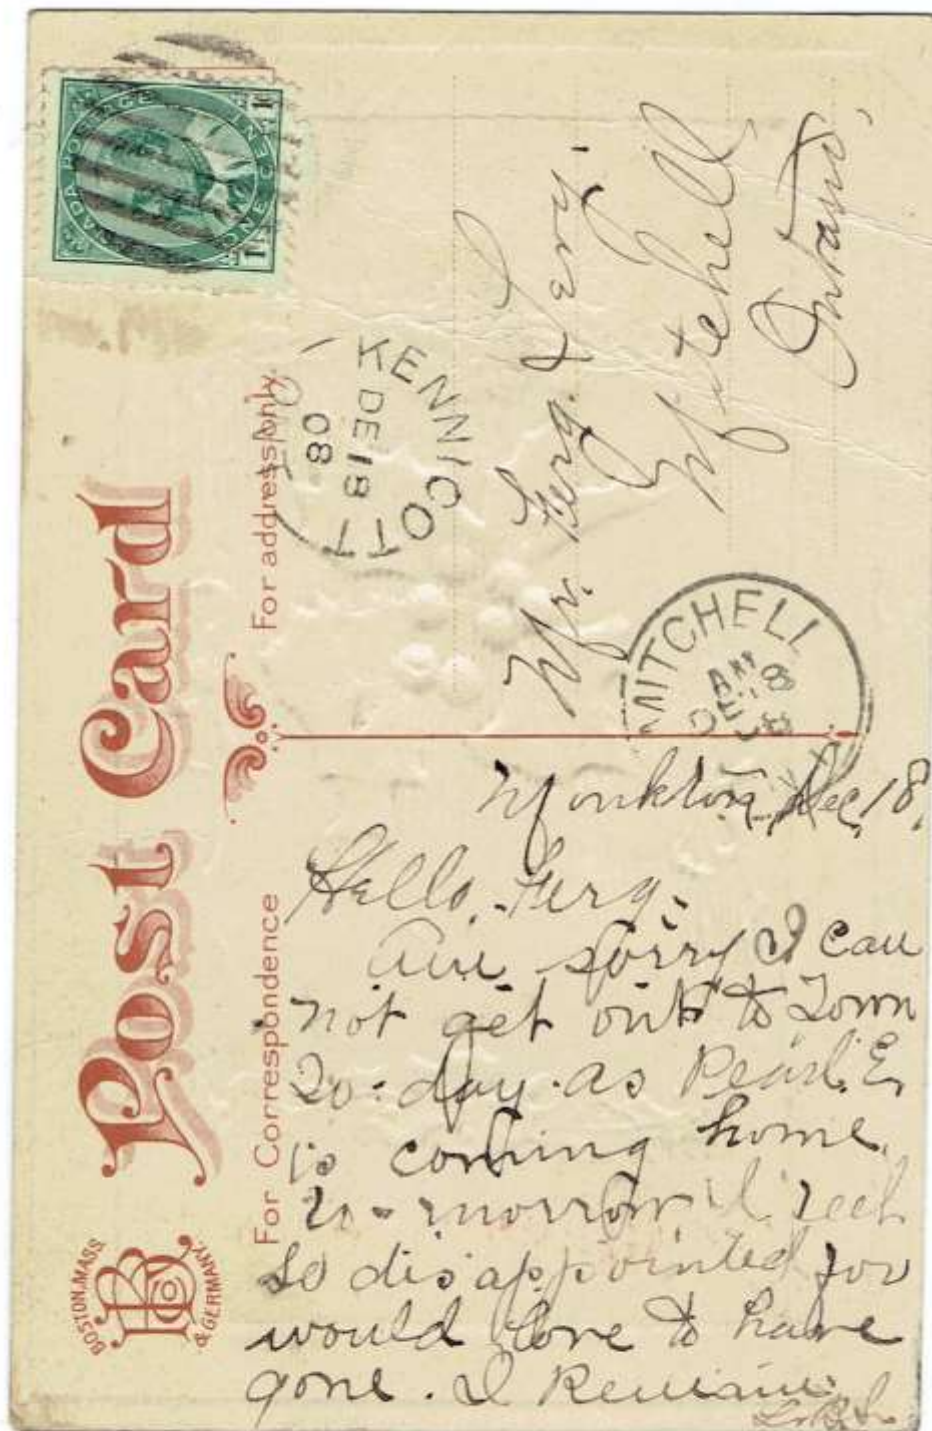 CANADA POSTAGE
ONE CENT
1 1
Post Card
BOSTON, MASS
& GERMANY.
For Correspondence
For address only.
KENNICOTT
DE 18
08
MITCHELL
AM
DE 18
08
Mr. Ferg.
Mitchell
Ontario.
Monkton, Dec, 18,
Hello, Ferg.
Am sorry I can
not get out to Town
To-day as Pearl. E.
is coming home
to-morrow I feel
so disappointed for
would love to have
gone. I Remain